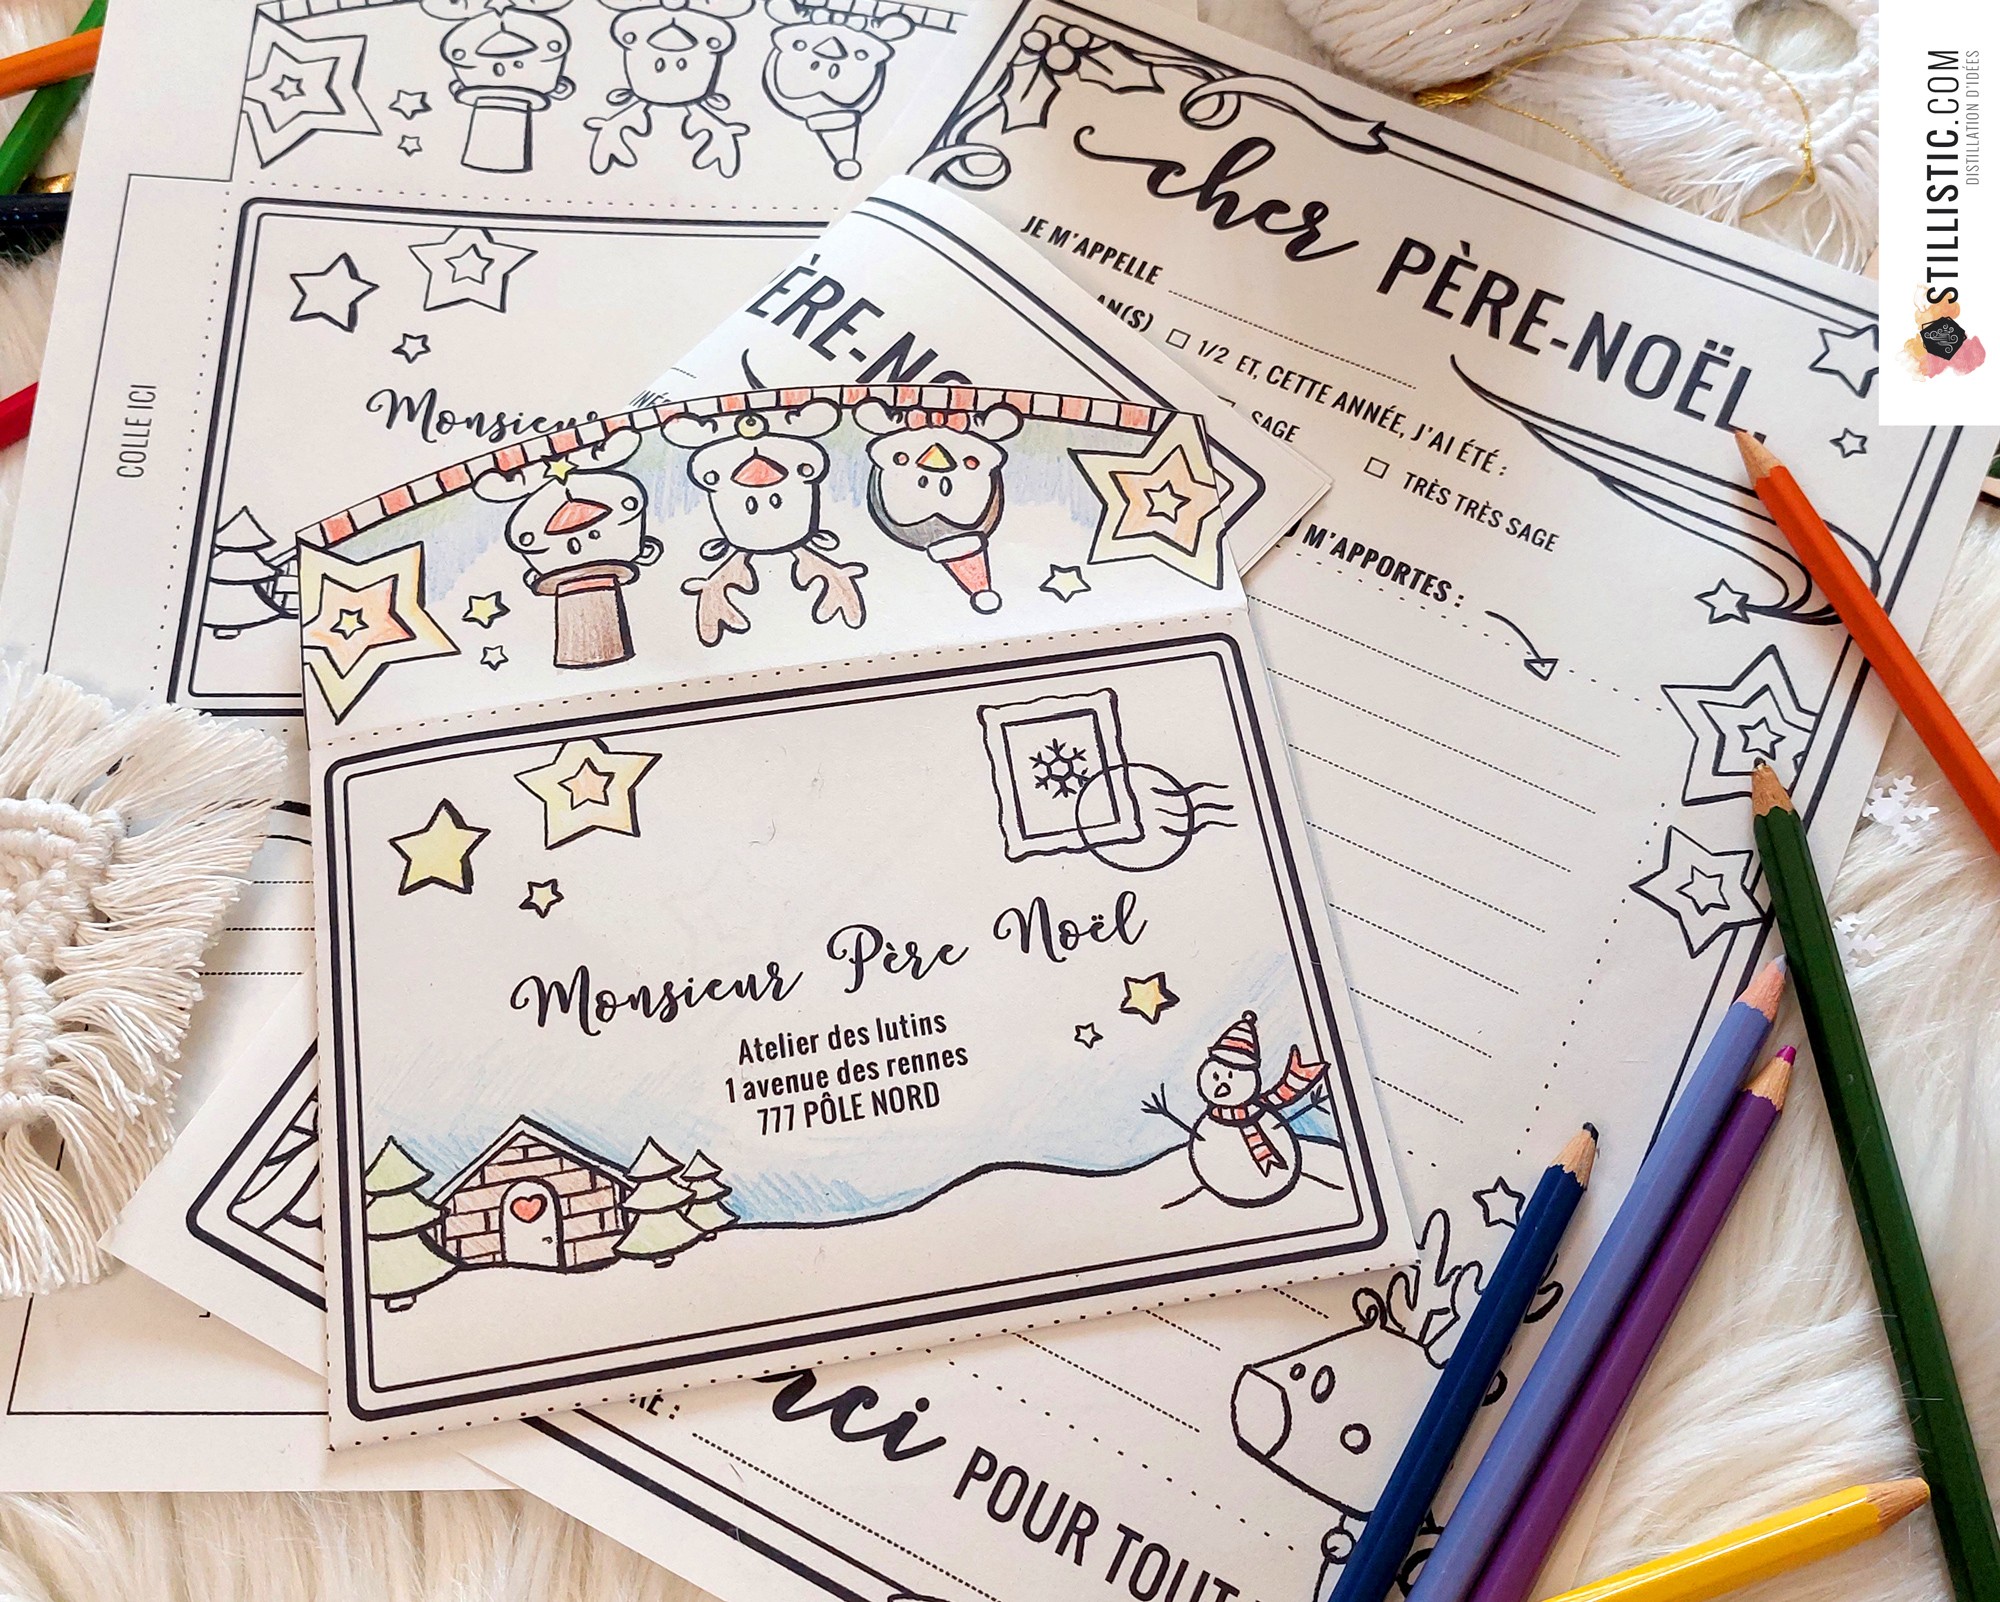 STILLISTIC.COM
DISTILLATION D'IDÉES
cher PÈRE-NOËL,
JE M'APPELLE
AN(S) 1/2 ET, CETTE ANNÉE, J'AI ÉTÉ :
SAGE
TRÈS TRÈS SAGE
M'APPORTES :
COLLE ICI
Monsieur
Monsieur Père Noël
Atelier des lutins
1 avenue des rennes
777 PÔLE NORD
POUR TOUT